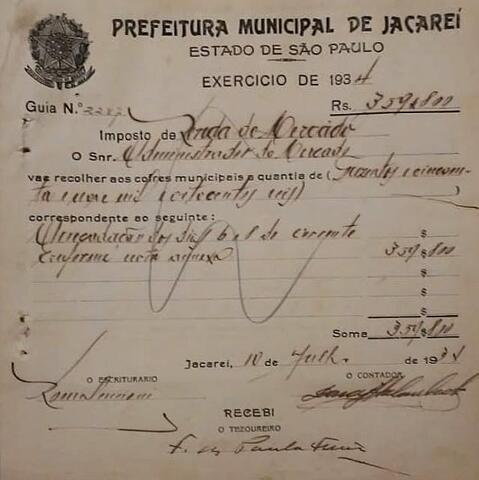 PREFEITURA MUNICIPAL DE JACAREÍ
ESTADO DE SÃO PAULO
EXERCICIO DE 1934
Guia N.º Rs. 359$800
Imposto de Renda do Mercado
O Snr. Administrador do Mercado
vae recolher aos cofres municipaes a quantia de (Trezentos e cincoen-
ta e nove mil e oitocentos reis)
correspondente ao seguinte:
Arrecadação dos dias 6 e 8 do corrente $
conforme nota annexa 359$800
$
$
$
Somma 359$800
Jacareí, 10 de Julho de 1934
O ESCRITURARIO O CONTADOR
RECEBI
O TEZOUREIRO
F. de Paula